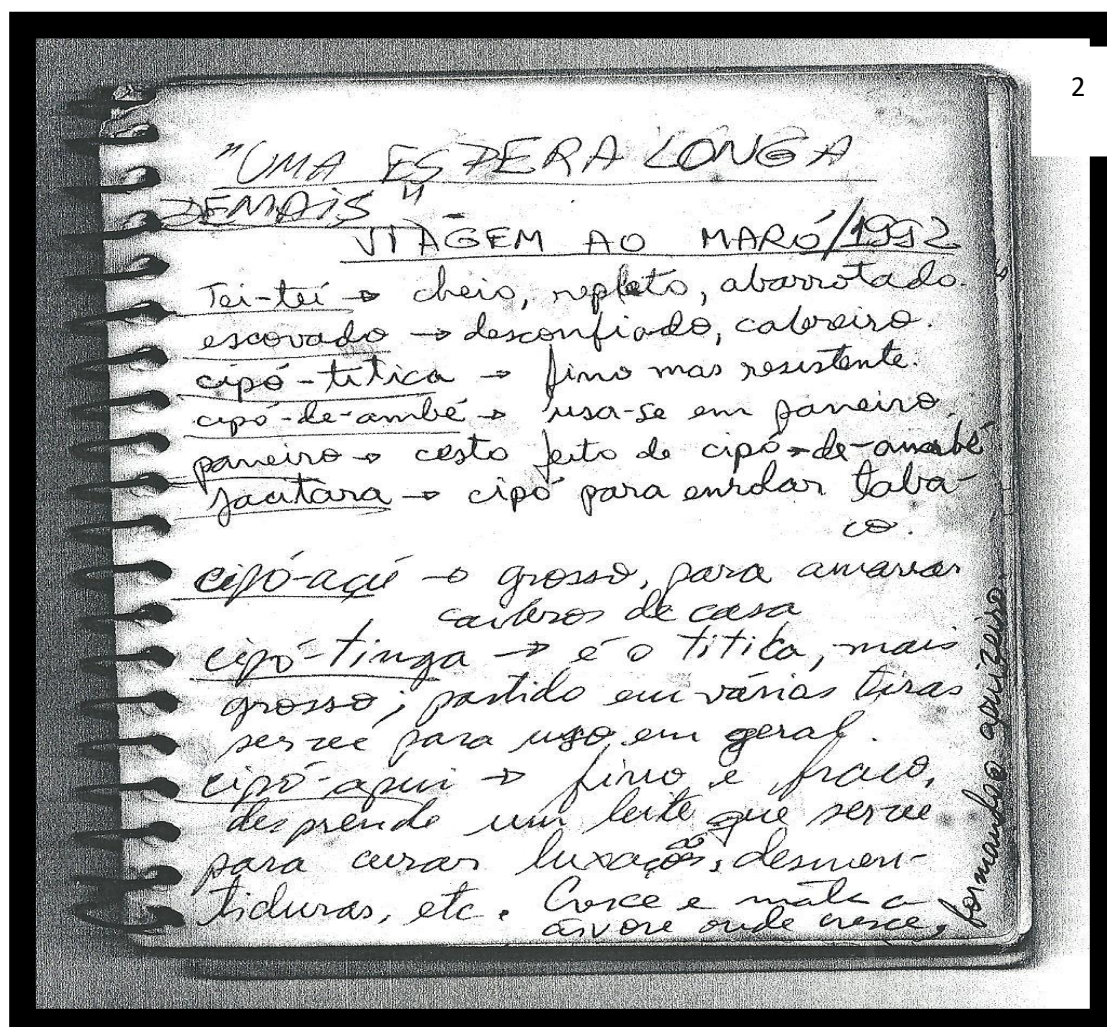 2
"UMA ESPERA LONGA
DEMAIS"
VIAGEM AO MARÓ/1992
Tei-tei → cheio, repleto, abarrotado.
escovado → desconfiado, cabreiro.
cipó-titica → fino mas resistente.
cipó-de-ambé → usa-se em paneiro.
paneiro → cesto feito de cipó-de-ambé
Jacitara → cipó para enrolar taba-
co.
cipó-açú → grosso, para amarrar
caibros de casa
cipó-tinga → é o titica, mais
grosso; partido em várias tiras
serve para uso em geral.
cipó-apuí → fino e fraco,
desprende um leite que serve
para curar luxações, desmen-
tiduras, etc. Cresce e mata a
árvore onde cresce,
formando o apuizeiro.